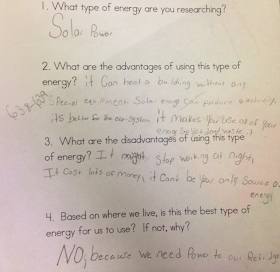 1. What type of energy are you researching?
Solar Power
2. What are the advantages of using this type of
energy? it can heat a building without any
special equipment. Solar energy can produce electricity,
its better for the eco-system it makes you use all of your
63x639
energy
3. What are the disadvantages of using this type
of energy? It might stop working at night,
It cost lots of money, it cant be your only source of
energy
4. Based on where we live, is this the best type of
energy for us to use? If not, why?
NO, because we need Power to our